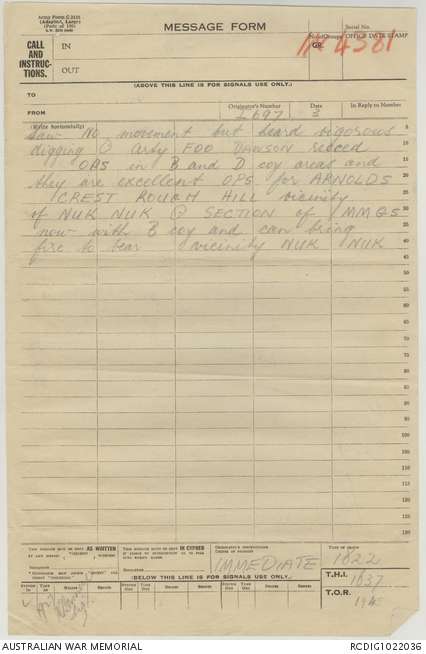 Army Form C.2128
(Adapted, Large)
(Pads of 100)
MESSAGE FORM
Serial No.
No. of Groups OFFICE DATE STAMP
GR
4581
CALL
AND
INSTRUC-
TIONS.
IN
OUT
(ABOVE THIS LINE IS FOR SIGNALS USE ONLY.)
TO
FROM
Originator's Number
L697
Date
3
In Reply to Number
(Write horizontally)
saw No movement but heard vigorous
digging @ Arty FOO DAWSON recced
OPS in B and D coy areas and
they are excellent OPs for ARNOLDS
CREST ROUGH HILL vicinity
of NUK NUK @ SECTION of MMGS
now with B coy and can bring
fire to bear vicinity NUK NUK
5
10
15
20
25
30
35
40
45
50
55
60
65
70
75
80
85
90
95
100
105
110
115
120
125
130
THIS MESSAGE MAY BE SENT AS WRITTEN
BY ANY MEANS
THIS MESSAGE MUST BE SENT IN CIPHER
ORIGINATOR'S INSTRUCTIONS
DEGREE OF PRIORITY
IMMEDIATE
TIME OF ORIGIN
1622
(BELOW THIS LINE IS FOR SIGNALS USE ONLY.)
T.H.I.
1637
T.O.R.
AUSTRALIAN WAR MEMORIAL
RCDIG1022036